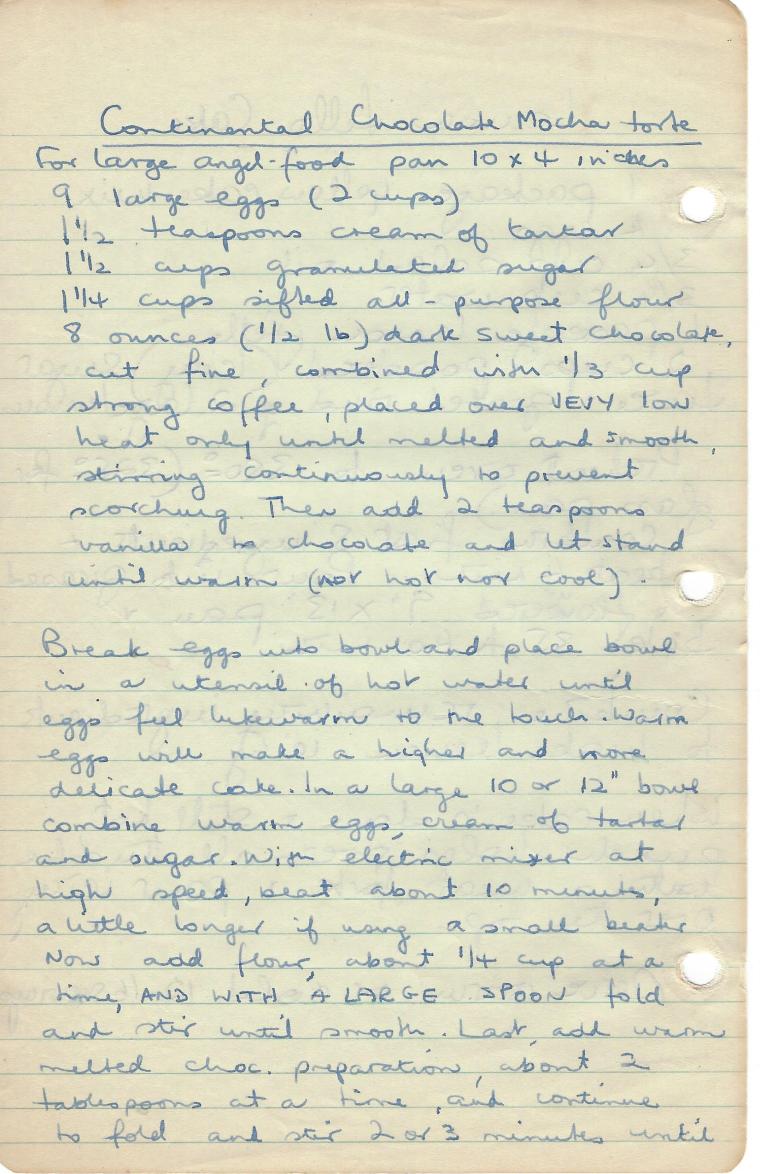 Continental Chocolate Mocha torte
For large angel-food pan 10 x 4 inches
9 large eggs (2 cups)
1 1/2 teaspoons cream of tartar
1 1/2 cups granulated sugar
1 1/4 cups sifted all-purpose flour
8 ounces (1/2 lb) dark sweet chocolate,
cut fine, combined with 1/3 cup
strong coffee, placed over VEVY low
heat only until melted and smooth,
stirring continuously to prevent
scorching. Then add 2 teaspoons
vanilla to chocolate and let stand
until warm (not hot nor cool).
Break eggs into bowl and place bowl
in a utensil of hot water until
eggs feel lukewarm to the touch. Warm
eggs will make a higher and more
delicate cake. In a large 10 or 12" bowl
combine warm eggs, cream of tartar
and sugar. With electric mixer at
high speed, beat about 10 minutes,
a little longer if using a small beater
Now add flour, about 1/4 cup at a
time, AND WITH A LARGE SPOON fold
and stir until smooth. Last, add warm
melted choc. preparation, about 2
tablespoons at a time, and continue
to fold and stir 2 or 3 minutes until